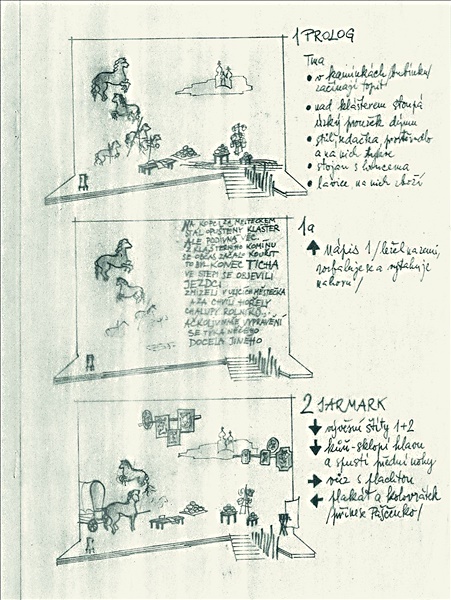 1 PROLOG
Tma
• v kamínkách/bubínku/
začínají topit
• nad klášterem stoupá
úzký proužek dýmu
a na nich
• stojan s
• lavice na nich zboží
1a
NA KOPCI ZA MĚSTEČKEM
STÁL OPUŠTĚNÝ KLÁŠTER
ALE PODIVNÁ VĚC.
Z KLÁŠTERNÍHO KOMÍNU
SE OBČAS ZAČALO KOUŘIT
TO BYL KONEC TICHA
VE STEPI SE OBJEVILI
JEZDCI
ZMIZELI V ULICI MĚSTEČKA
A ZA CHVÍLI HOŘELY
CHALUPY ROLNÍKŮ...
AČKOLIV NAŠE VYPRAVĚNÍ
SE TÝKÁ NĚČEHO
DOCELA JINÉHO
↑ Nápis 1 /ležel na zemi,
rozbaluje se a vytahuje
nahoru/
2 JARMARK
↓ vývěsní štíty 1+2
↓ kůň-sklopí hlavu
a spustí přední nohy
→ vůz s plachtou
← plakát a kolovrátek
/přinese Paščenko/